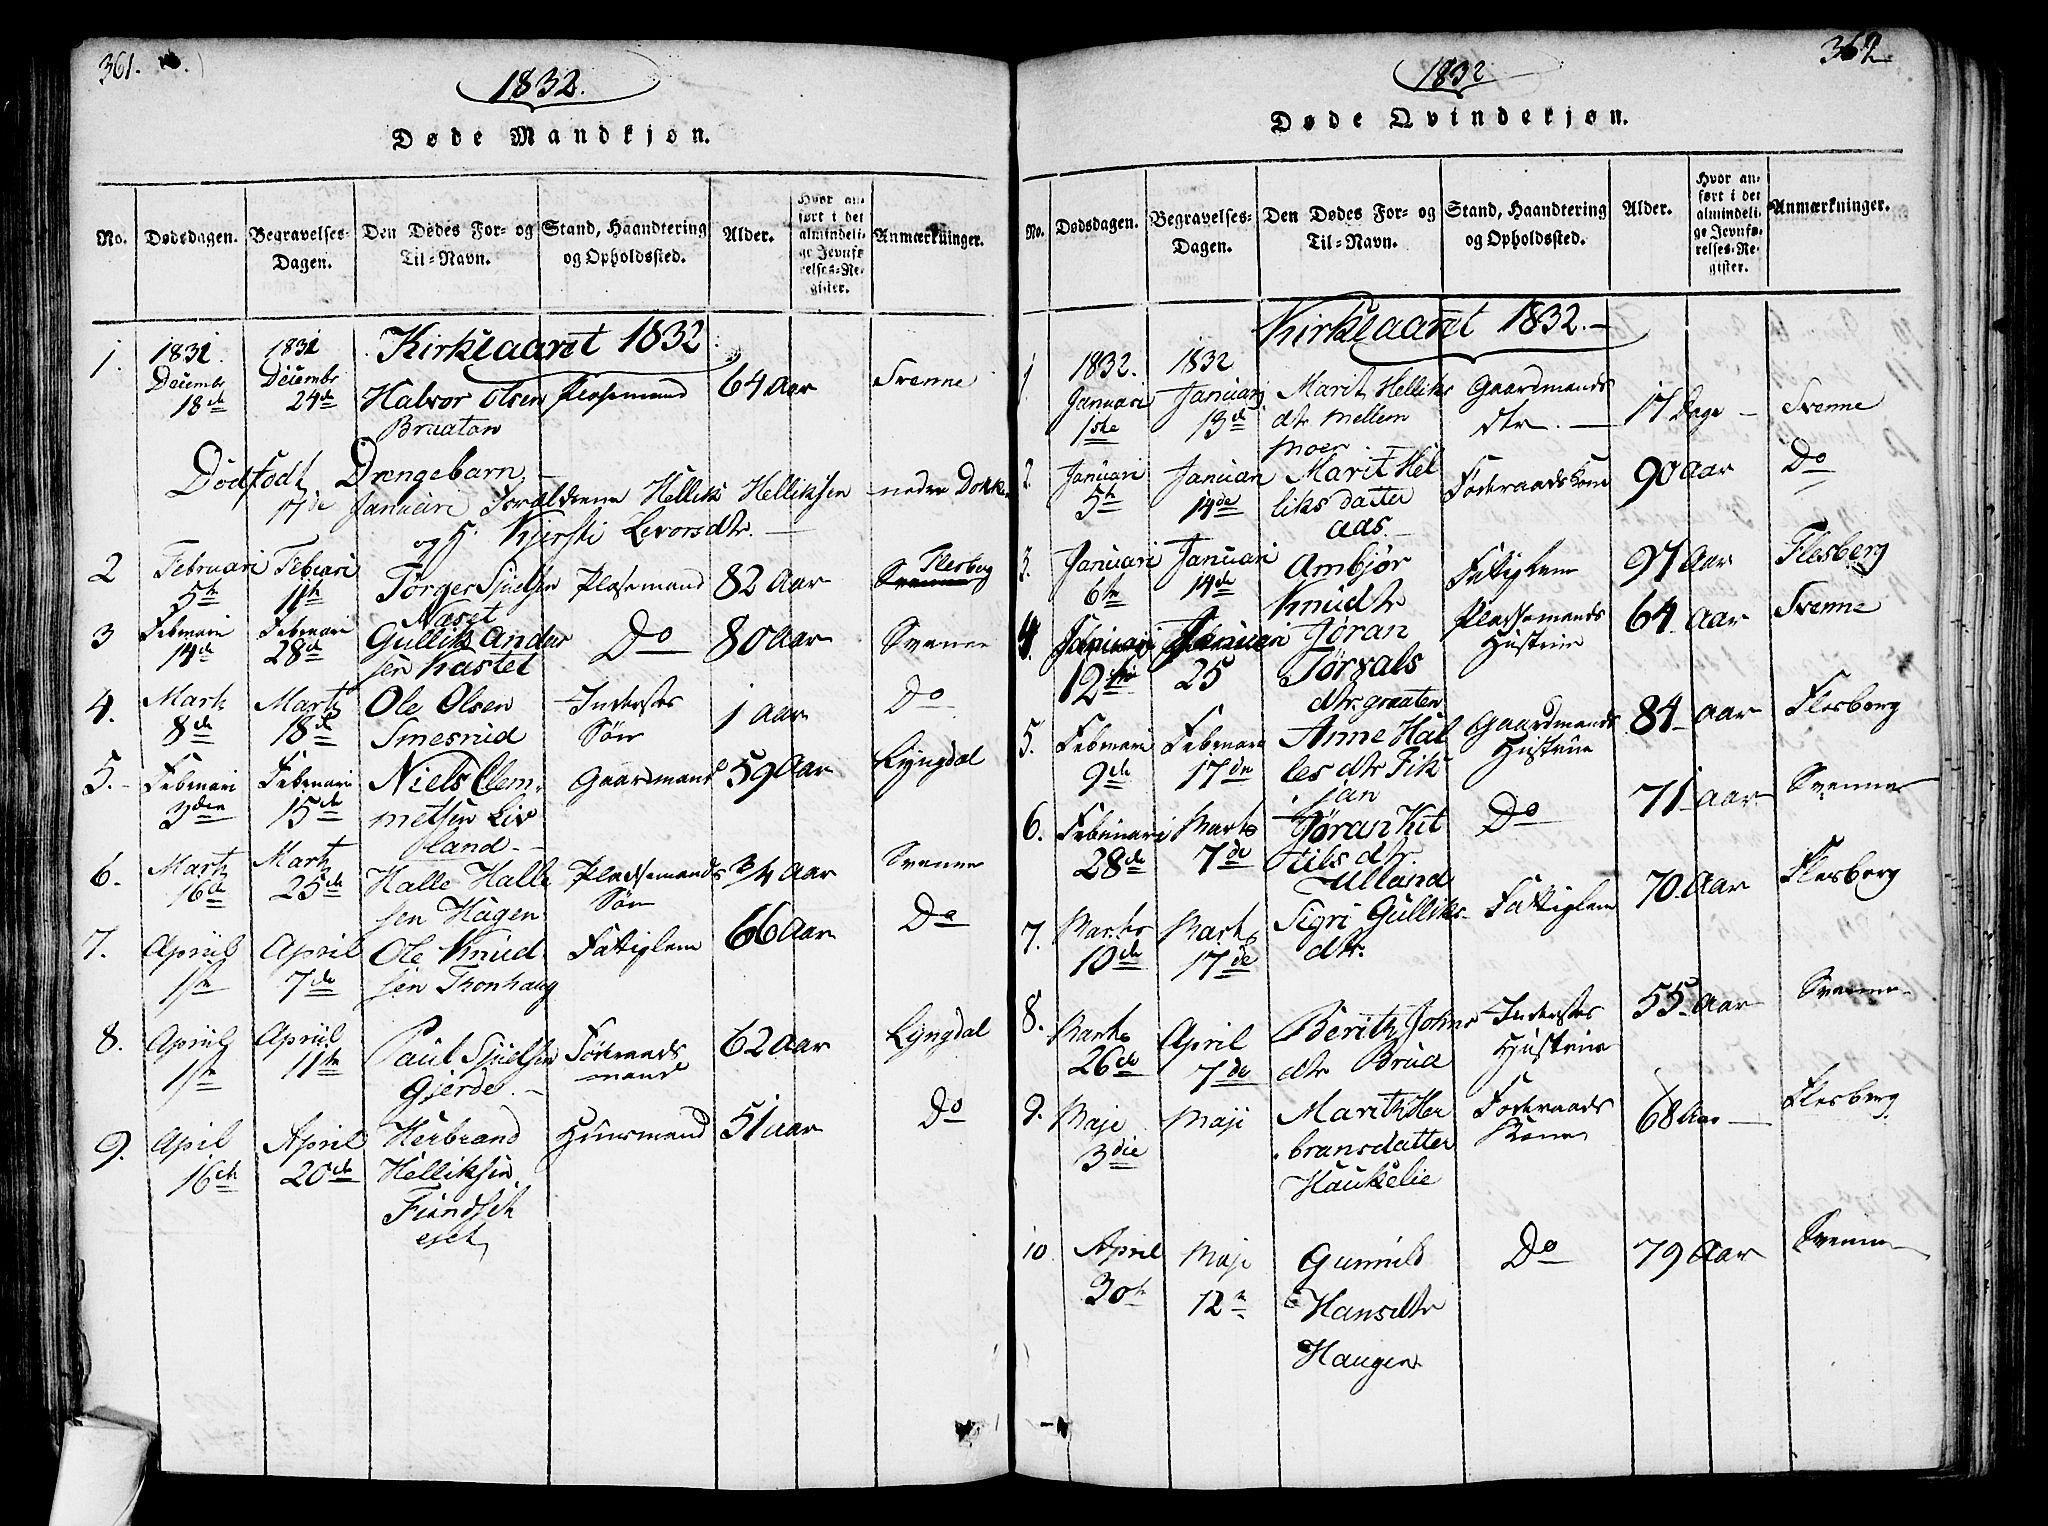 361.
1832.
Døde Mandkjøn.
No.
Dødsdagen.
Begravelses-
Dagen.
Den Dødes For- og
Til-Navn.
Stand, Haandtering
og Opholdssted.
Alder.
Hvor an-
ført i det
almindeli-
ge Jevnfø-
relses-Re-
gister.
Anmærkninger.
Kirkeaaret 1832.
1.
1831.
Decembr
18de
1831
Decembr
24de
Halvor Olsen
Braaton
Plasemand
64 Aar
Svenne
Dødfødt Drengebarn
17de Januari Forældrene Hellik Helliksen nedre Dokke
og H. Kjersti Levorsdtr.
2
Februari
5te
Februari
11te
Torger Sjulsen
Næset
Plasemand
82 Aar
Flesberg
Svenne
3
Februari
14de
Februari
28de
Gullik Anders
sen Kastet
Do
80 Aar
Svenne
4.
Marts
8de
Marts
18de
Ole Olsen
Smesrud
Inderstes
Søn
1 Aar
Do
5.
Februari
3den
Februari
15de
Niels Clem
metsen Liv
land
Gaardmand
59 Aar
Lyngdal
6.
Marts
16de
Marts
25de
Halle Halle
sen Hagen
Pladsemands
Søn
3/4 Aar
Svenne
7.
April
1ste
April
7de
Ole Knud
sen Thonhaug
Fattiglem
66 Aar
Do
8.
April
1ste
April
11te
Paul Sjulsen
Gjerde.
Føderaads
mand
62 Aar
Lyngdal
9.
April
16de
April
20de
Herbrand
Helliksen
Fundset
eiet
Huusmand
51 aar
Do
362
1832
Døde Qvindekjøn.
No.
Dødsdagen.
Begravelses-
Dagen.
Den Dødes For- og
Til-Navn.
Stand, Haandtering
og Opholdssted.
Alder.
Hvor an-
ført i det
almindeli-
ge Jevnfø-
relses-Re-
gister.
Anmærkninger.
Kirkeaaret 1832.
1
1832.
Januari
1ste
1832
Januarj
13de
Marit Helliks
dtr Mellem
Moen
Gaardmands
dtr.
17 Dage
Svenne
2
Januari
5te
Januari
14de
Marit Hel
liks datter
Aas
Føderaadskone
90 Aar
Do
3.
Januari
6te
Januari
14de
Ambjør
Knudtr
Fattiglem
97 Aar
Flesberg
4.
Januari
12te
Januari
25
Jøran
Torvals
dtr graaten
Pladsemands
Hustrue
64 Aar
Svenne
5.
Februari
9de
Februari
17de
Anne Hal
les dtr Fik
jan
Gaardmands
Hustrue
84 Aar
Flesberg
6.
Februari
28de
Marts
7de
Jøran Kit
tils dtr.
Ulland
Do
71 Aar
Svenne
7.
Marts
10de
Marts
17de
Sigri Gulliks
dtr.
Fattiglem
70. Aar
Flesberg
8.
Marts
26de
April
7de
Berith Johns
dtr Brud
Inderstes
Hustrue
55. Aar
Svenne
9.
Maje
3die
Maji
Marith Her
bransdatter
Haukelie
Føderaads
Kone
68 Aar
Flesberg
10
April
30te
Maji
12te
Gunnild
Hansdtr
Haugen
Do
79 Aar
Svenne